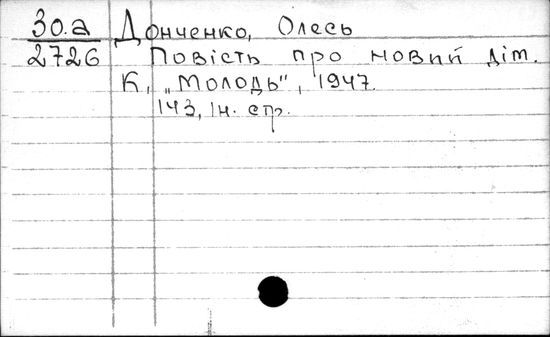 30.а
2726
Донченко, Олесь
Повість про новий діт.
К, „Молодь", 1947.
143, Ін. стр.